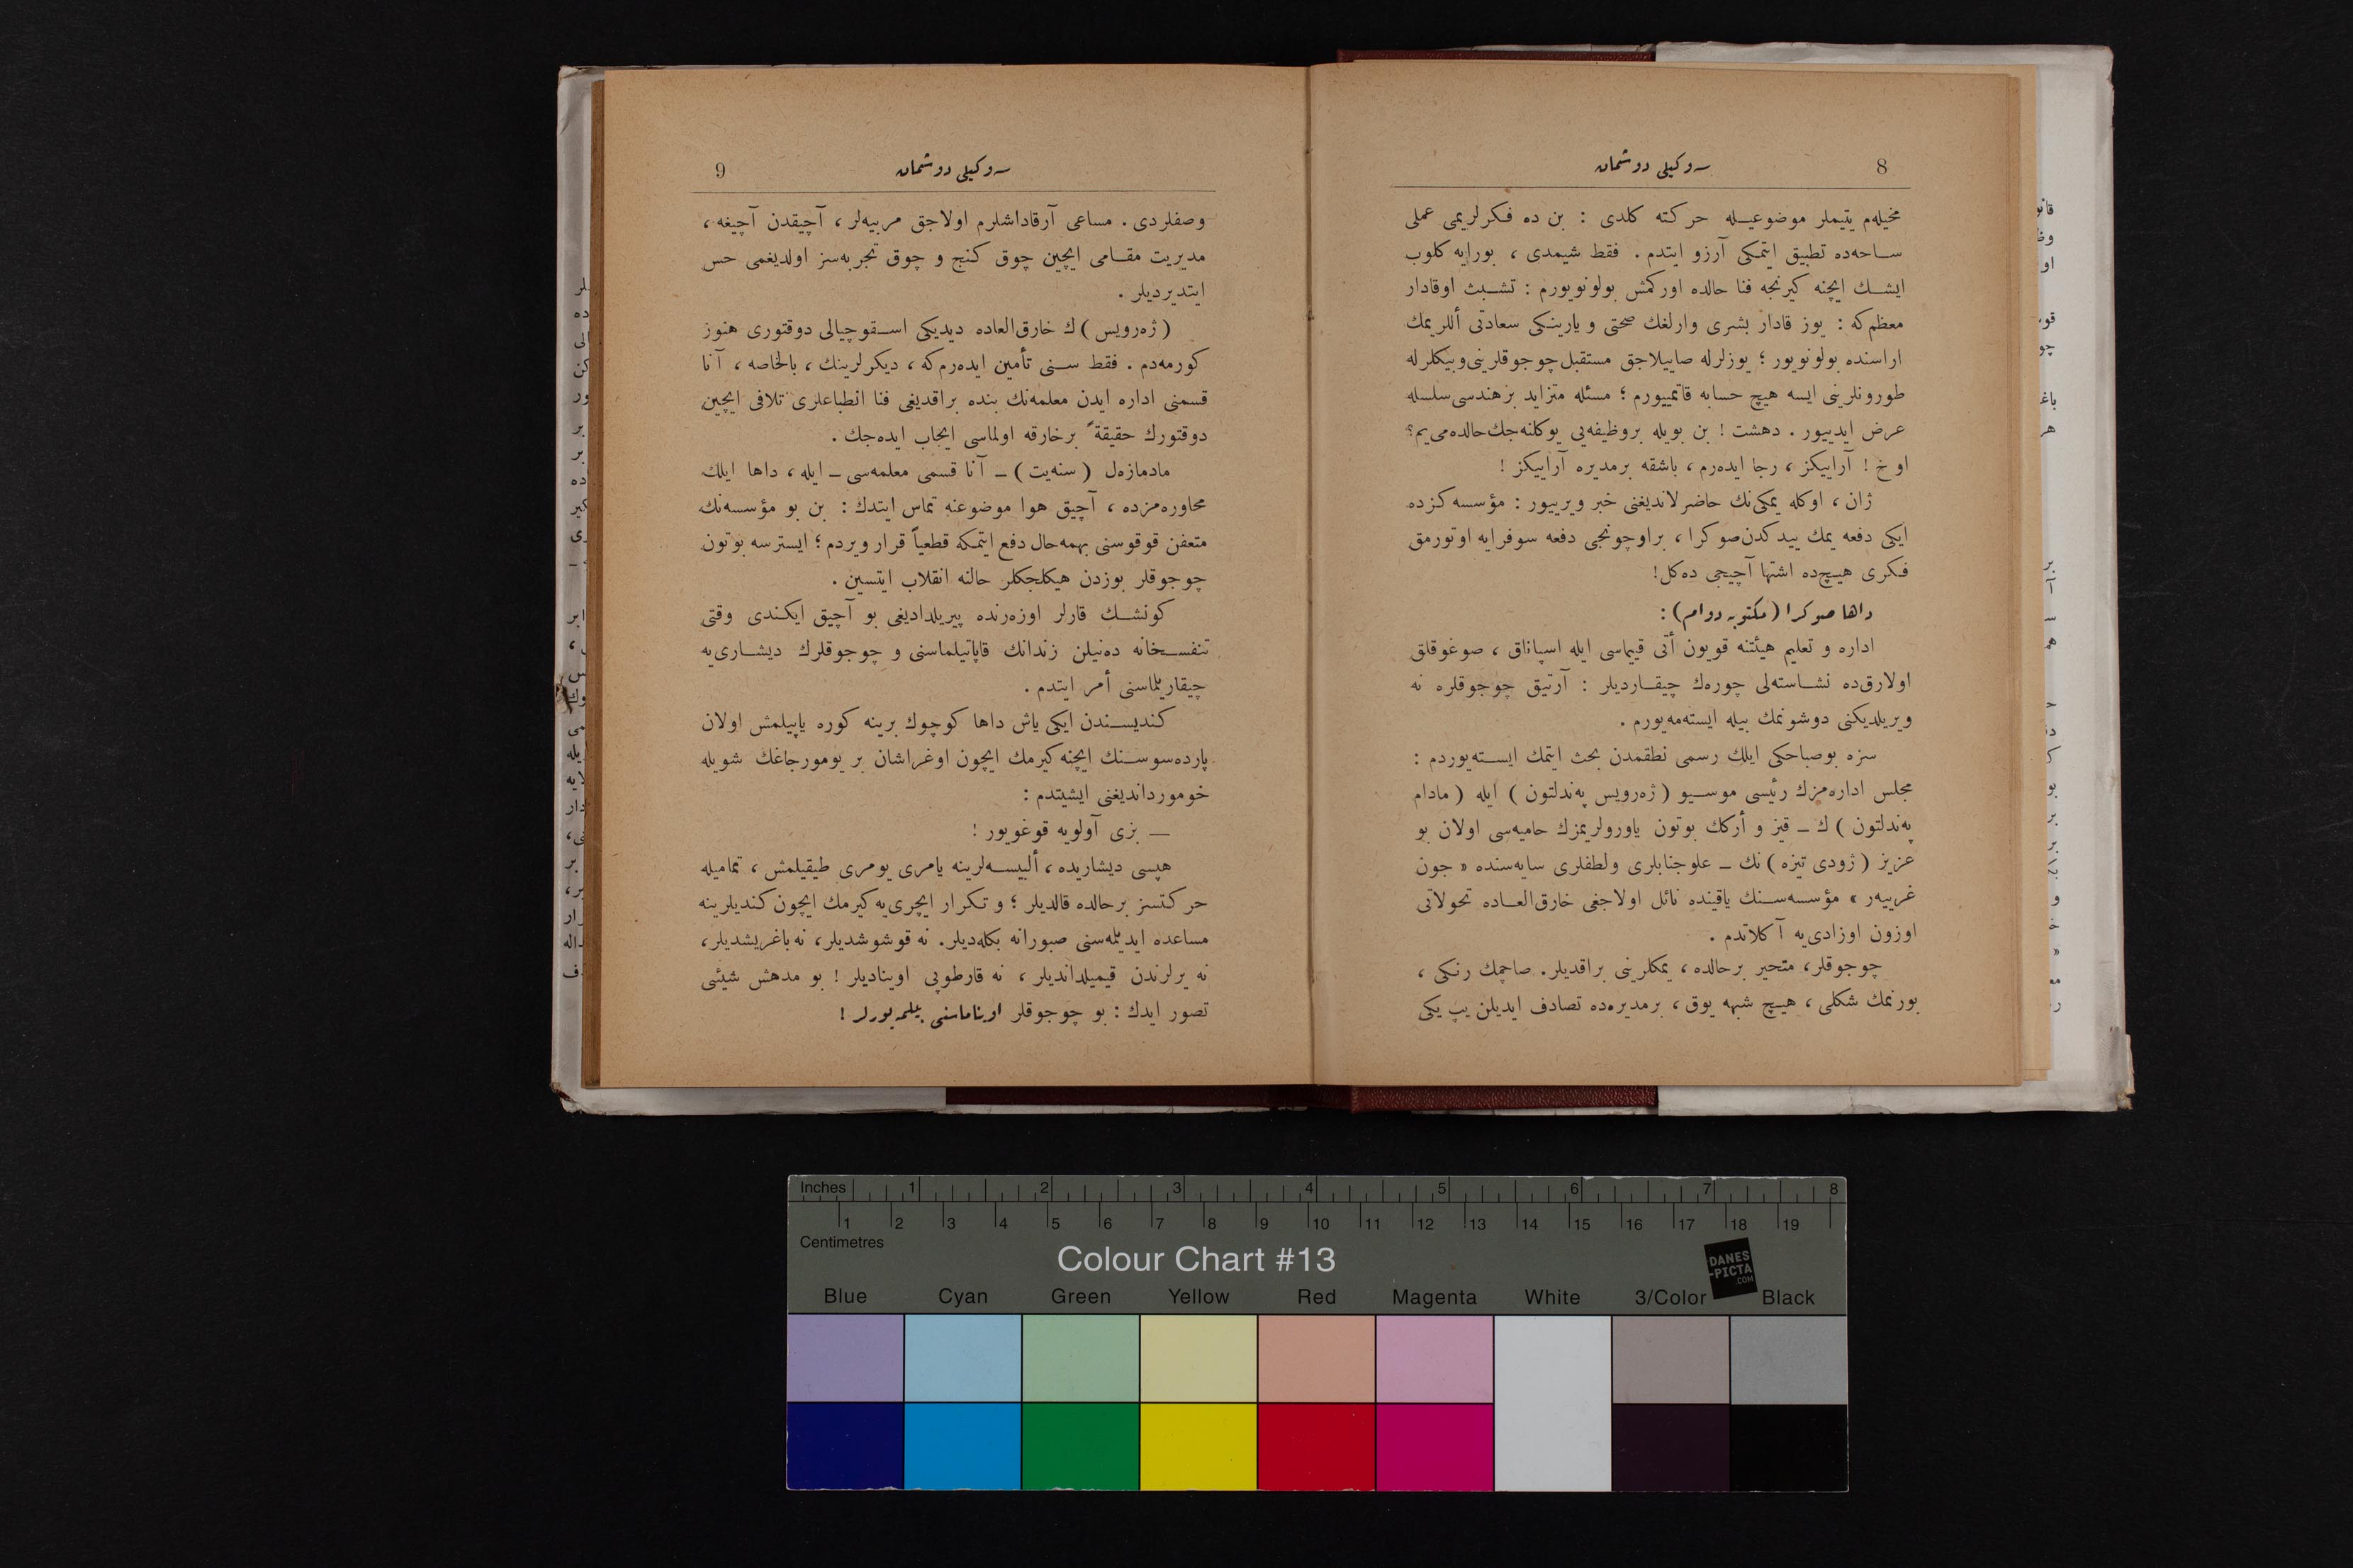 8
سوكيلى دوشمان
مخيله‌م يتيملر موضوعيله حركته كلدى : بن ده فكرلريمى عملى
ساحه‌ده تطبيق ايتمكى آرزو ايتدم . فقط شيمدى ، بورايه كلوب
ايشك ايچنه كيرنجه فنا حالده اوركمش بولونويورم : تشبث اوقادار
معظم‌كه : يوز قادار بشرى وارلغك صحتى و يارينكى سعادتى أللريمك
اراسنده بولونويور ؛ يوزلرله صاييلاجق مستقبل چوجوقلرينى و بيكلرله
طورونلرينى ايسه هيچ حسابه قاتمييورم ؛ مسئله متزايد بر هندسى سلسله
عرض ايدييور . دهشت ! بن بويله بر وظيفه‌يى يوكلنه‌جك حالده‌مى‌يم ؟
اوخ ! آراييكز ، رجا ايده‌رم ، باشقه برمديره آراييكز !
ژان ، اوكله يمكى‌نك حاضرلانديغنى خبر ويرييور : مؤسسه‌كزده
ايكى دفعه يمك ييدكدن صوكرا ، براوچونجى دفعه سوفرايه اوتورمق
فكرى هيچ‌ده اشتها آچيجى ده‌كل!
داها صوكرا (مكتوبه دوام) :
اداره و تعليم هيئتنه قويون أتى قيماسى ايله اسپاناق ، صوغوقلق
اولارق‌ده نشاسته‌لى چوره‌ك چيقارديلر : آرتيق چوجوقلره نه
ويريلديكنى دوشونمك بيله ايسته‌مه‌يورم .
سزه بوصباحكى ايلك رسمى نطقمدن بحث ايتمك ايسته‌يوردم :
مجلس اداره‌مزك رئيسى موسيو (ژه‌رويس په‌ندلتون) ايله (مادام
په‌ندلتون) ك ـ قيز و أركك بوتون ياورولريمزك حاميه‌سى اولان بو
عزيز (ژودى تيزه) نك ـ علوجنابلرى ولطفلرى سايه‌سنده « جون
غرييه‌ر » مؤسسه‌سنك ياقينده نائل اولاجغى خارق‌العاده تحولاتى
اوزون اوزادى‌يه آكلاتدم .
چوجوقلر، متحير برحالده، يمكلرينى براقديلر. صاچمك رنكى ،
بورنمك شكلى ، هيچ شبهه يوق ، برمديره‌ده تصادف ايديلن پ يكى
9
سوكيلى دوشمان
وصفلردى . مساعى آرقاداشلرم اولاجق مربيه‌لر ، آچيقدن آچيغه ،
مديريت مقامى ايچين چوق كنج و چوق تجربه‌سز اولديغمى حس
ايتديرديلر .
(ژه‌رويس) ك خارق‌العاده ديديكى اسقوچيالى دوقتورى هنوز
كورمه‌دم . فقط سنى تأمين ايده‌رم‌كه ، ديكرلرينك ، بالخاصه ، آنا
قسمنى اداره ايدن معلمه‌نك بنده براقديغى فنا انطباعلرى تلافى ايچين
دوقتورك حقيقةً برخارقه اولماسى ايجاب ايده‌جك .
مادمازه‌ل (سنه‌يت) ـ آنا قسمى معلمه‌سى ـ ايله ، داها ايلك
محاوره‌مزده ، آچيق هوا موضوعنه تماس ايتدك : بن بو مؤسسه‌نك
متعفن قوقوسنى بهمه‌حال دفع ايتمكه قطعياً قرار ويردم ؛ ايسترسه بوتون
چوجوقلر بوزدن هيكلجكلر حالنه انقلاب ايتسين .
كونشك قارلر اوزه‌رنده پيريلداديغى بو آچيق ايكندى وقتى
تنفسخانه ده‌نيلن زندانك قاپاتيلماسنى و چوجوقلرك ديشارى‌يه
چيقاريلماسنى أمر ايتدم .
كنديسندن ايكى ياش داها كوچوك برينه كوره ياپيلمش اولان
پارده‌سوسنك ايچنه كيرمك ايچون اوغراشان بر يومورجاغك شويله
خومورداندیغنى ايشيتدم :
ــ بزى آولويه قوغويور !
هپسى ديشاريده ، ألبيسه‌لرينه يامرى يومرى طيقيلمش ، تماميله
حركتسز برحالده قالديلر ؛ و تكرار ايچرى‌يه كيرمك ايچون كنديلرينه
مساعده ايديلمه‌سنى صبورانه بكله‌ديلر. نه قوشوشديلر، نه باغريشديلر،
نه يرلرندن قيميلدانديلر ، نه قارطوپى اوينادیلر ! بو مدهش شيئى
تصور ايدك : بو چوجوقلر اويناماسنى بيلمه‌يورلر !
Inches 1 2 3 4 5 6 7 8
1 2 3 4 5 6 7 8 9 10 11 12 13 14 15 16 17 18 19
Centimetres
Colour Chart #13
DANES
-PICTA
.COM
Blue Cyan Green Yellow Red Magenta White 3/Color Black